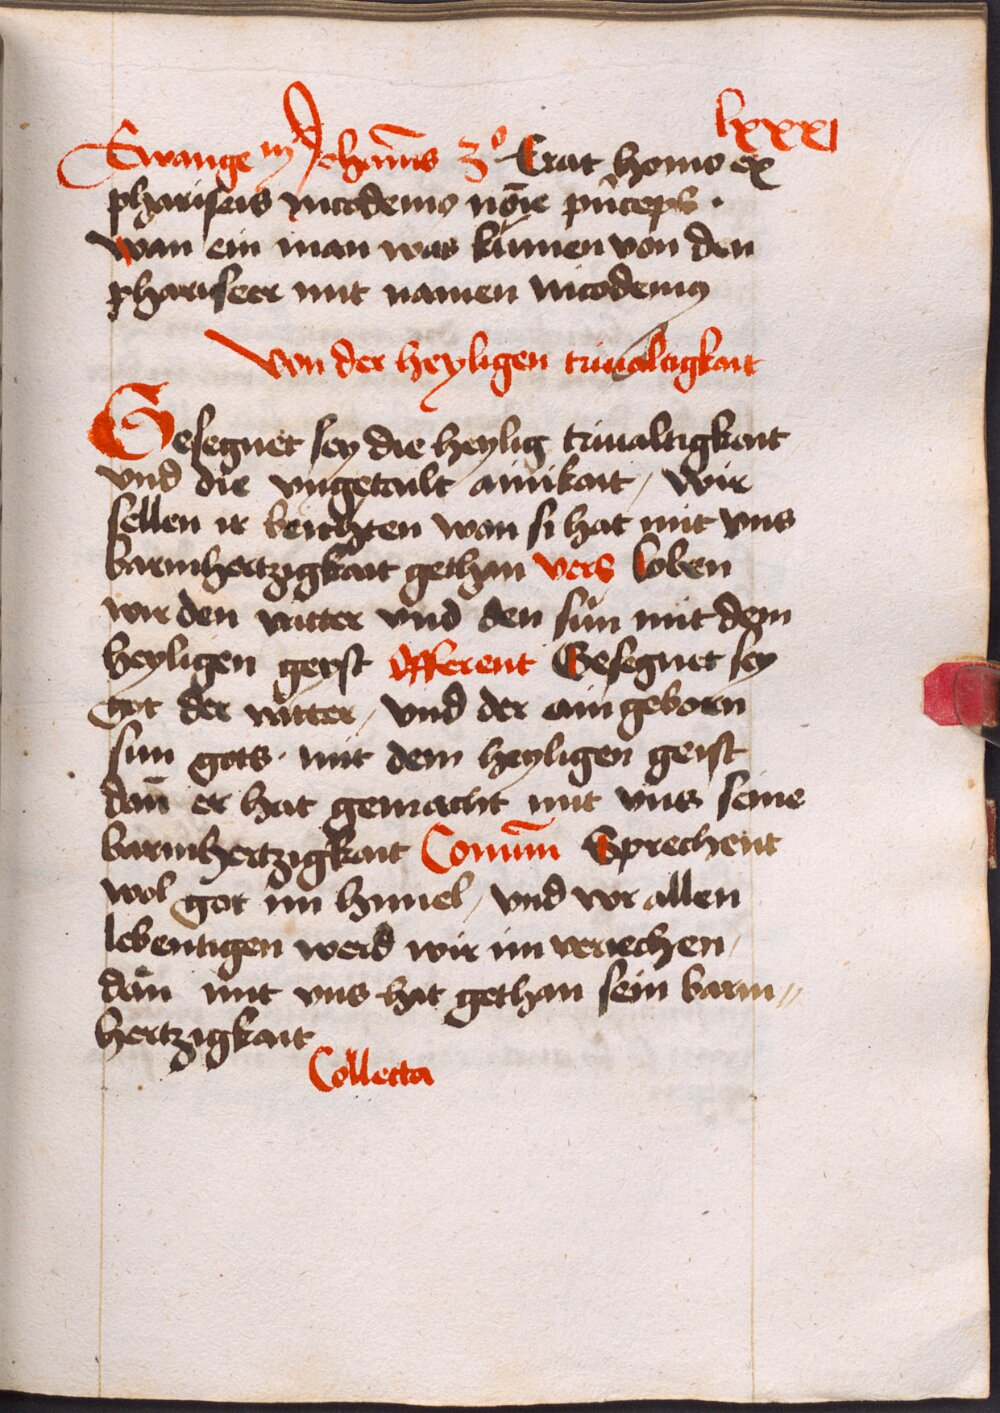 lxxxi
Ewange iij Johānis 3º Erat homo ex
phariseis nicodemꝯ nōie pͥnceps ·
wan ein man was kūmen von den
phariseer mit namen nicodemꝯ
Von der heyligen triualtigkait
Gesegnet sey die heylig triualtigkait
vnd die vngetailt ainikait / wir
sellen ir beichten wan si hat mit vns
barmhertzigkait gethan vers loben
wir den vatter vnd den sun mit dem
heyligen geyst Offerent Gesegnet sey
got der vatter / vnd der ain geborn
sun gots · mit dem heyligen geist
dan̄ er hat gemacht mit vns seine
barmhertzigkait Comūm Sprechent
wol got im himel / vnd vor allen
lebentigen werd wir im veriechen /
dan̄ mit vns hat gethan sein barm //
hertzigkait
Collecta